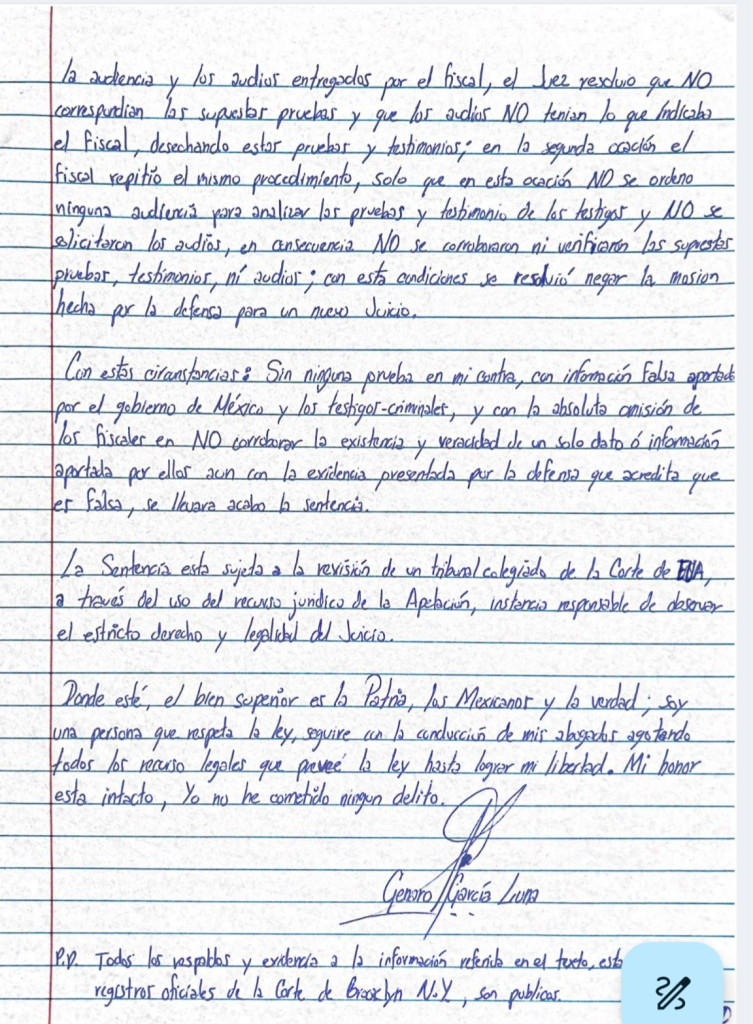 la audiencia y los audios entregados por el fiscal, el Juez resolvio que NO
correspondian las supuestas pruebas y que los audios NO tenian lo que indicaba
el Fiscal, desechando estas pruebas y testimonios; en la segunda ocación el
fiscal repitió el mismo procedimiento, solo que en esta ocación NO se ordeno
ninguna audiencia para analizar las pruebas y testimonio de los testigos y NO se
solicitaron los audios, en consecuencia NO se corroboraron ni verificaron las supuestas
pruebas, testimonios, ni audios; con esta condiciones se resolvió negar la mosion
hecha por la defensa para un nuevo Juicio.
Con estas circunstancias: Sin ninguna prueba en mi contra, con información Falsa aportada
por el gobierno de México y los testigos-criminales, y con la absoluta omisión de
los fiscales en NO corroborar la existencia y veracidad de un solo dato ó información
aportada por ellos aun con la evidencia presentada por la defensa que acredita que
es falsa, se llevara acabo la sentencia.
La Sentencia esta sujeta a la revisión de un tribunal colegiado de la Corte de EUA,
a través del uso del recurso juridico de la Apelación, instancia responsable de observar
el estricto derecho y legalidad del Juicio.
Donde esté, el bien superior es la Patria, los Mexicanos y la verdad; soy
una persona que respeta la ley, seguire con la conducción de mis abogados agotando
todos los recurso legales que preveé la ley hasta lograr mi libertad. Mi honor
esta intacto, Yo no he cometido ningun delito.
Genaro García Luna
P.D. Todos los respaldos y evidencia a la información referida en el texto,
registros oficiales de la Corte de Brooklyn N.Y, son publicas.